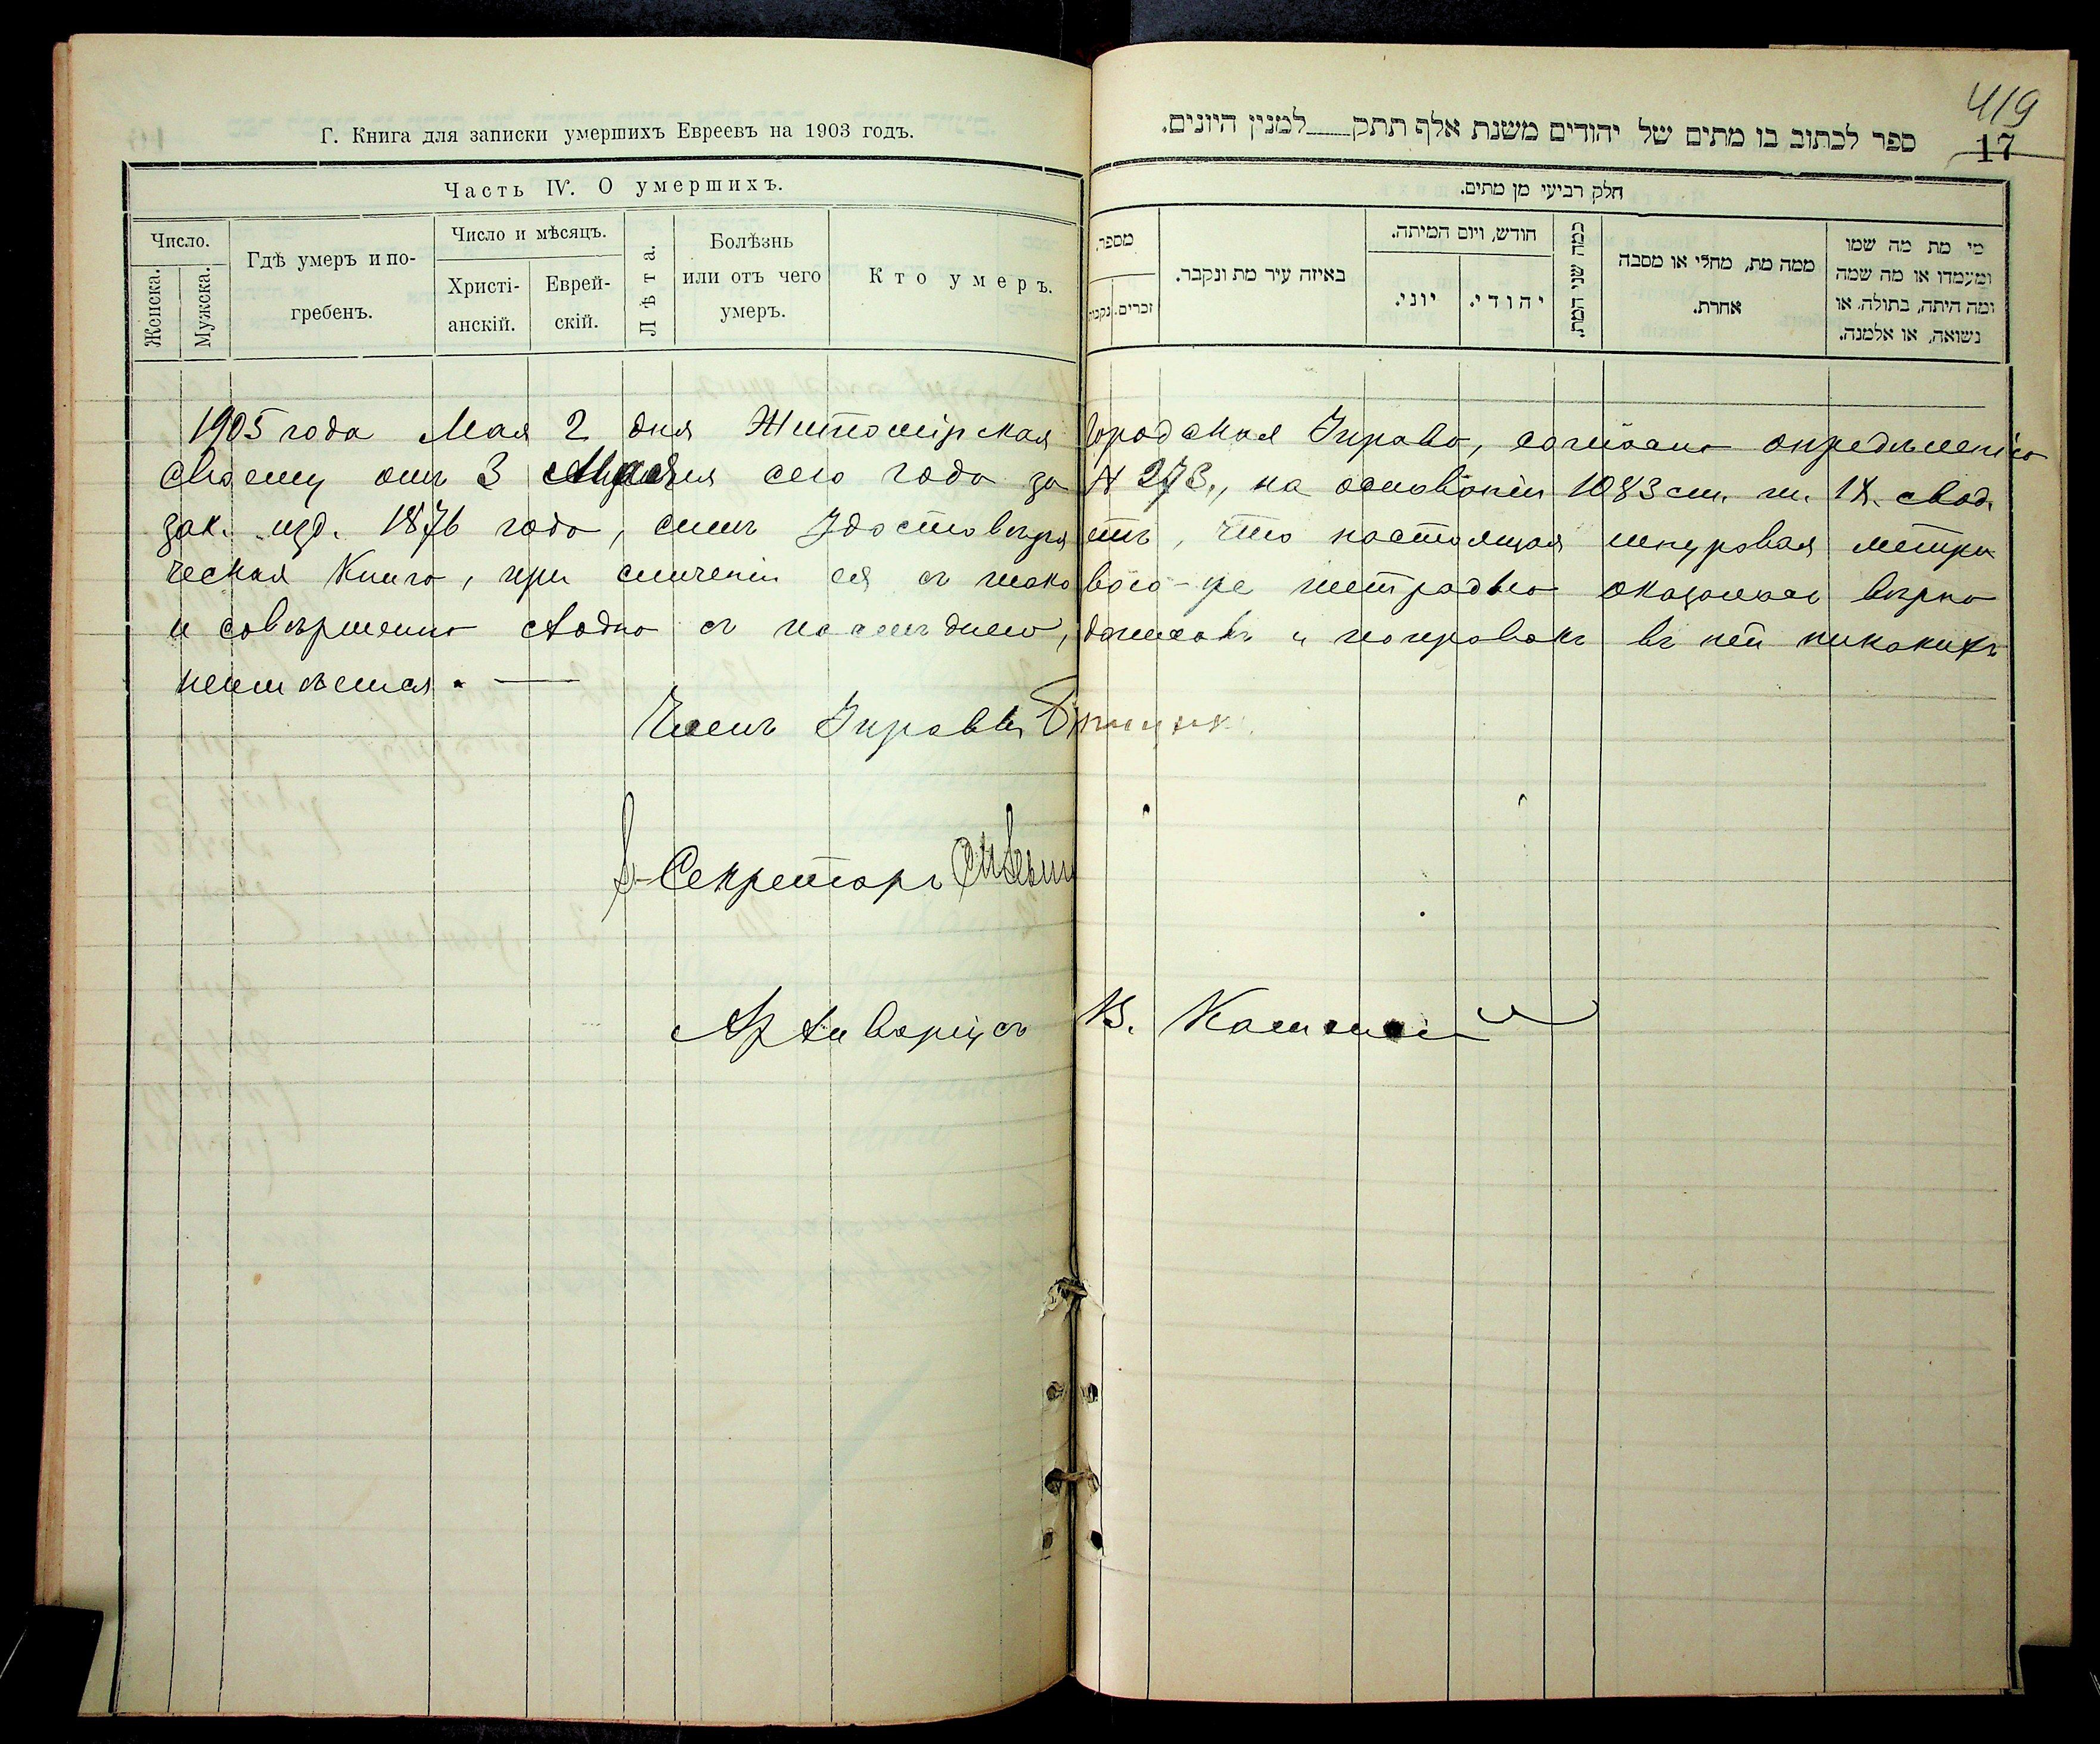 Г. Книга для записки умершихъ Евреевъ на 1903 годъ.
Часть IV. О умершихъ.
Число.
Женска.
Мужска.
Гдѣ умеръ и по-
гребенъ.
Число и мѣсяцъ.
Христі-
анскій.
Еврей-
скій.
Лѣта.
Болѣзнь
или отъ чего
умеръ.
Кто умеръ.
419
17
ספר לכתוב בו מתים של יהודים משנת אלף תתק למנין היונים.
חלק רביעי מן מתים.
מספר.
נקבות.
זכרים.
באיזה עיר מת ונקבר.
חודש, ויום המיתה.
יוני.
יהודי.
כמה שני המת.
ממה מת, מחלי או מסבה
אחרת.
מי מת מה שמו
ומעמדו או מה שמה
ומה היתה, בתולה או
נשואה, או אלמנה.
1905 года Мая 2 дня Житомірская Городская Управа, согласно опредѣленію
своему отъ 3 сего года за № 273, на основаніи 1083 ст. т. IX. свод.
зак. изд. 1876 года, симъ удостовѣряетъ, что настоящая шнуровая метри
ческая Книга, при сличеніи ея съ таковою-же тетрадью оказалась вѣрна
и совершенно сходна съ послѣднею, и поправокъ въ ней никакихъ
неимѣется. —
Членъ Управы
Секретарь
Архиваріусъ В.